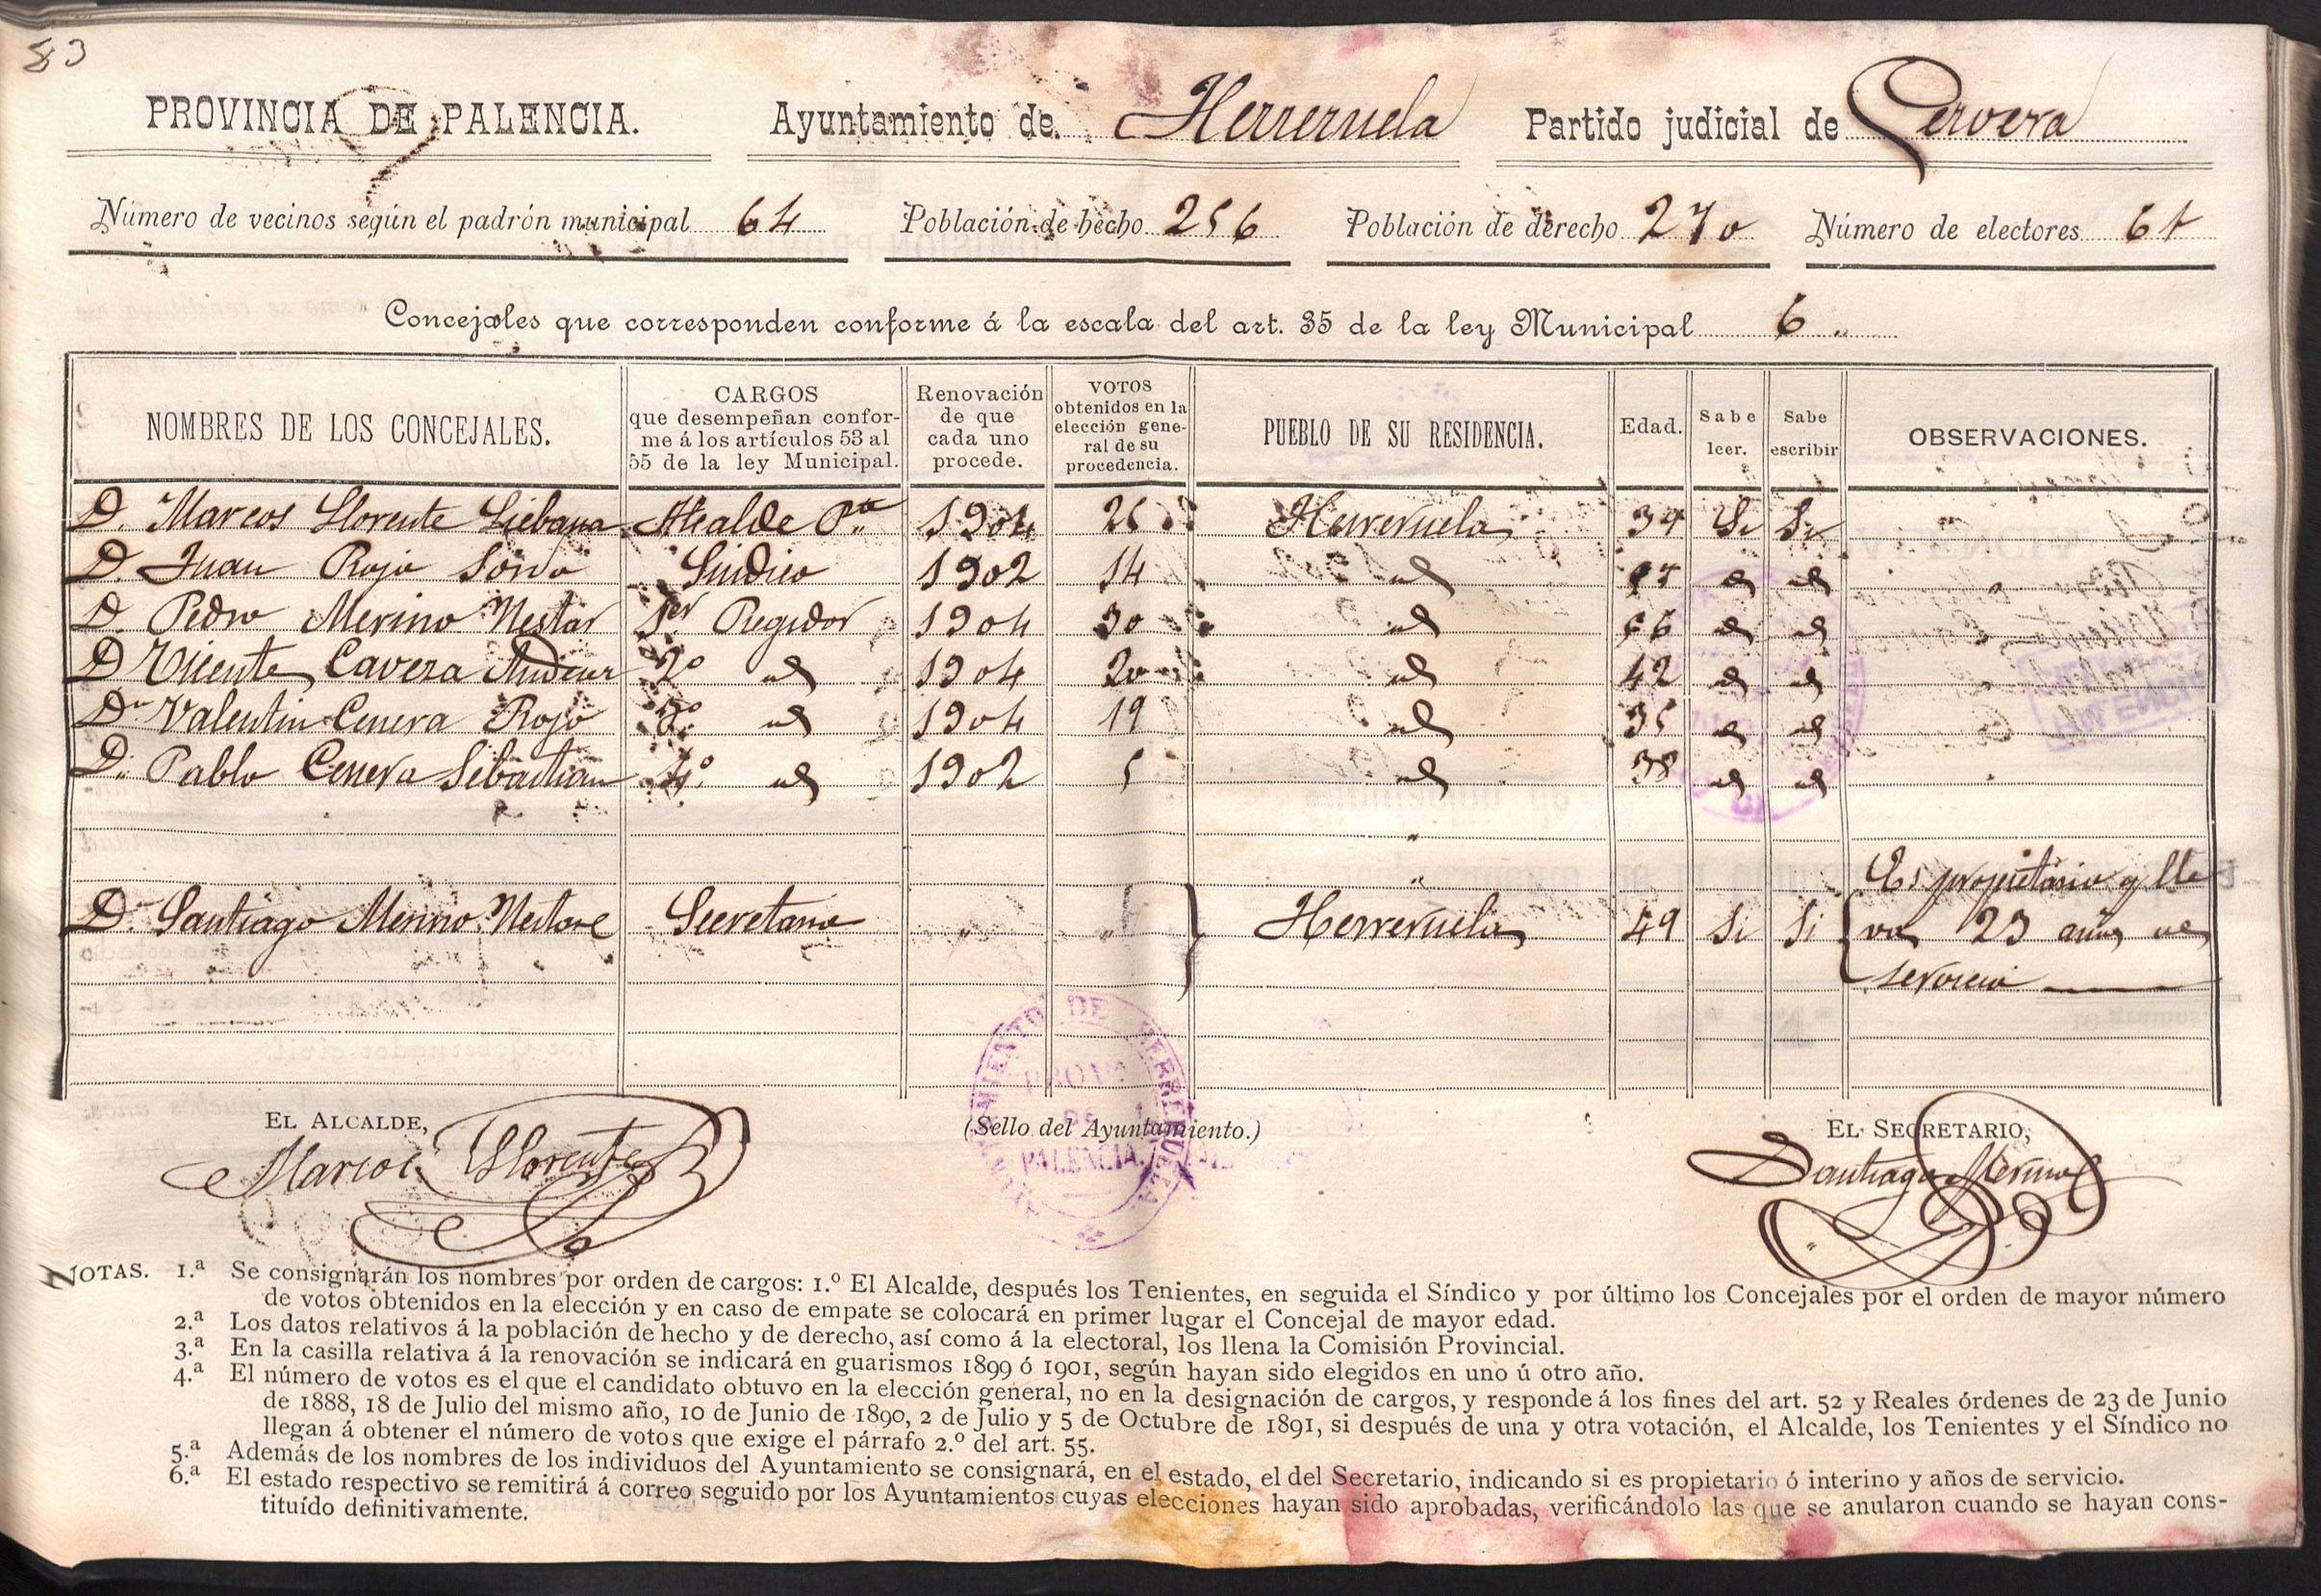 83
PROVINCIA DE PALENCIA. Ayuntamiento de Herreruela Partido judicial de Cervera
Número de vecinos según el padrón municipal 64 Población de hecho 256 Población de derecho 270 Número de electores 61
Concejales que corresponden conforme á la escala del art. 35 de la ley Municipal 6 „
NOMBRES DE LOS CONCEJALES. CARGOS que desempeñan confor- me á los artículos 53 al 55 de la ley Municipal. Renovación de que cada uno procede. VOTOS obtenidos en la elección gene- ral de su procedencia. PUEBLO DE SU RESIDENCIA. Edad. Sabe leer. Sabe escribir OBSERVACIONES.
D. Marcos Llorente Liebana Alcalde Pte 1904 25 Herreruela 39 Si Si „
D. Juan Rojo Síndico 1902 14 id id id „
D. Pedro Merino Nestar 1er Regidor 1904 30 id 56 id id
D Vicente Cavera 2º id 1904 20 id 42 id id
Dn Valentin Cenera Rojo 3º id 1904 19 id 35 id id
Dn Pablo Cenera Sebastian 4º id 1902 5 id 38 id id
„
„
Dn Santiago Merino Secretario „ „ Herreruela 49 Si Si Es propietario y lle
va 23 años de
servicio
EL ALCALDE, (Sello del Ayuntamiento.) EL SECRETARIO,
Marcos Llorente Santiago Merino
AYUNTAMIENTO DE HERRERUELA
PROVª
DE
PALENCIA.
NOTAS. 1.ª Se consignarán los nombres por orden de cargos: 1.º El Alcalde, después los Tenientes, en seguida el Síndico y por último los Concejales por el orden de mayor número
de votos obtenidos en la elección y en caso de empate se colocará en primer lugar el Concejal de mayor edad.
2.ª Los datos relativos á la población de hecho y de derecho, así como á la electoral, los llena la Comisión Provincial.
3.ª En la casilla relativa á la renovación se indicará en guarismos 1899 ó 1901, según hayan sido elegidos en uno ú otro año.
4.ª El número de votos es el que el candidato obtuvo en la elección general, no en la designación de cargos, y responde á los fines del art. 52 y Reales órdenes de 23 de Junio
de 1888, 18 de Julio del mismo año, 10 de Junio de 1890, 2 de Julio y 5 de Octubre de 1891, si después de una y otra votación, el Alcalde, los Tenientes y el Síndico no
llegan á obtener el número de votos que exige el párrafo 2.º del art. 55.
5.ª Además de los nombres de los individuos del Ayuntamiento se consignará, en el estado, el del Secretario, indicando si es propietario ó interino y años de servicio.
6.ª El estado respectivo se remitirá á correo seguido por los Ayuntamientos cuyas elecciones hayan sido aprobadas, verificándolo las que se anularon cuando se hayan cons-
tituído definitivamente.